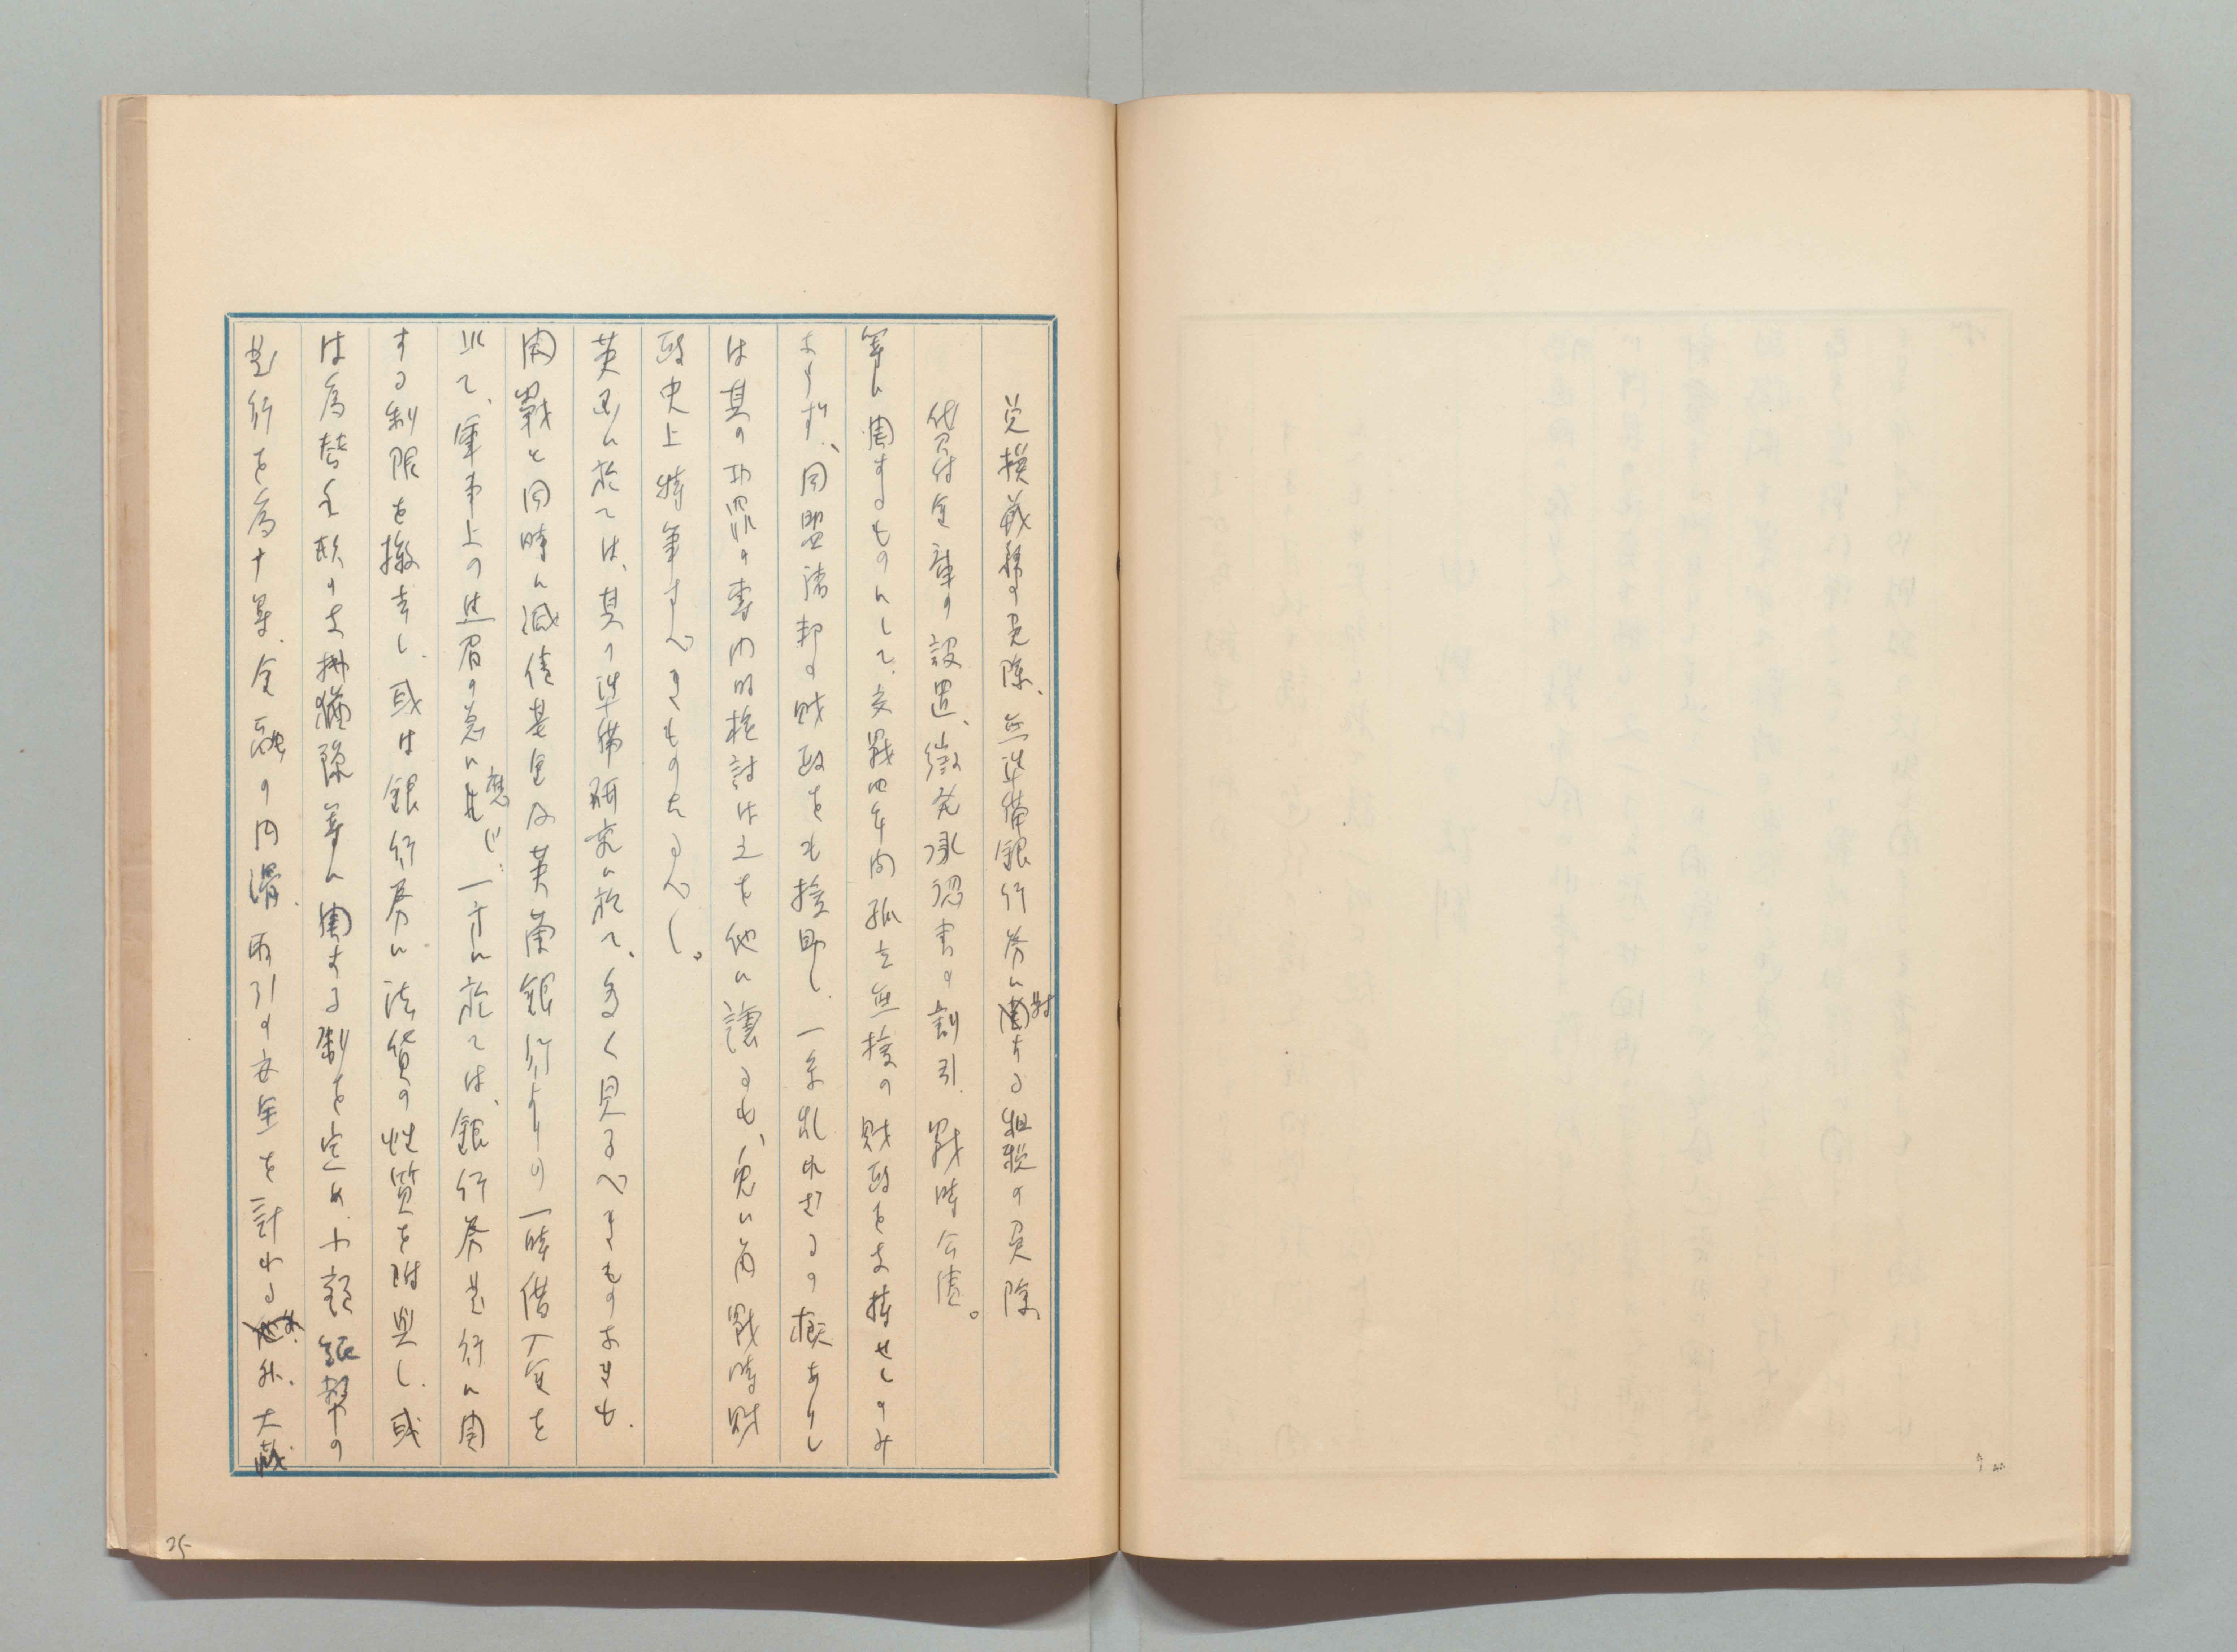 兌換義務の免除、無準備銀行券に対する租税の免除、
貸付金庫の設置、徴発承認書の割引、戦時公債。
等に関するものにして、交戦四年間孤立無援の財政を支持せしのみ
ならず、同盟諸邦の財政をも援助し、一糸乱れざるの概ありし
は其の功罪の専門的検討は之を他に譲るも、兎に角戦時財
政史上特筆すべきものたるべし。
英国に於ては、其の準備研究に於て、多く見るべきものなきも、
開戦と同時に減債基金及英蘭銀行よりの一時借入金を
以て、軍事上の焦眉の急に応じ、一方に於ては、銀行券発行に関
する制限を撤去し、或は銀行券に法貨の性質を附与し、或
は為替手形の支払猶予等に関する制を定め、小額紙幣の
発行を為す等、金融の円滑、取引の安全を計れる外、大蔵
25